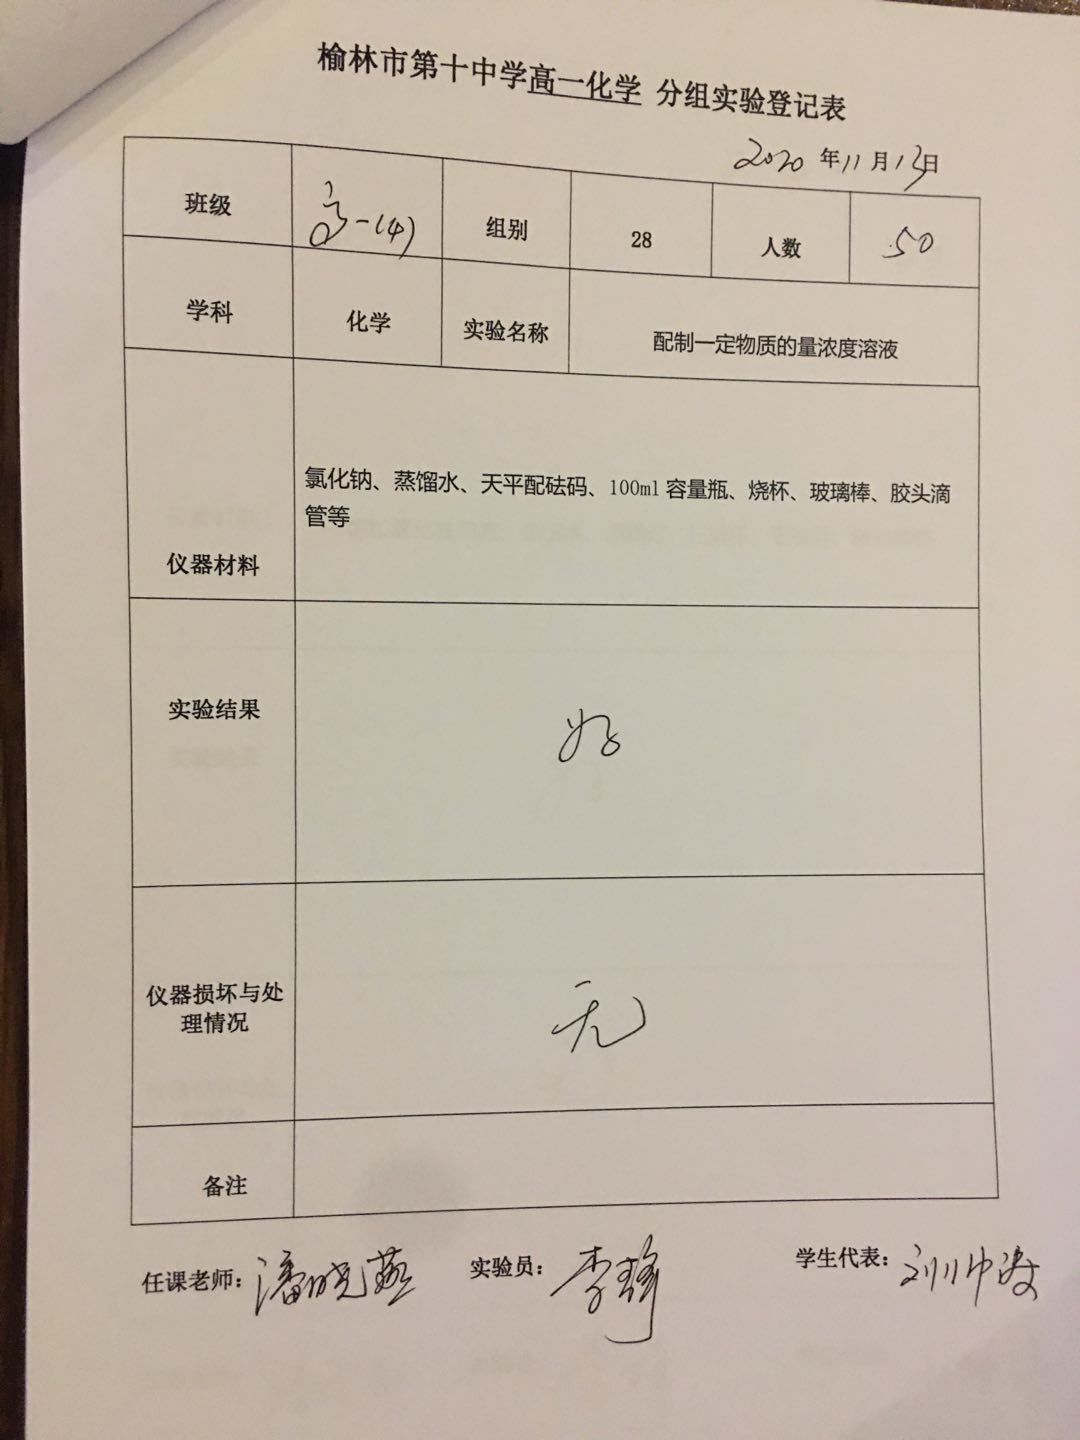 榆林市第十中学高一化学 分组实验登记表
2020 年 11 月 13 日
班级 高一(4) 组别 28 人数 50
学科 化学 实验名称 配制一定物质的量浓度溶液
仪器材料
氯化钠、蒸馏水、天平配砝码、100ml 容量瓶、烧杯、玻璃棒、胶头滴
管等
实验结果 好
仪器损坏与处
理情况
无
备注
任课老师：潘晓燕 实验员：李锋 学生代表：